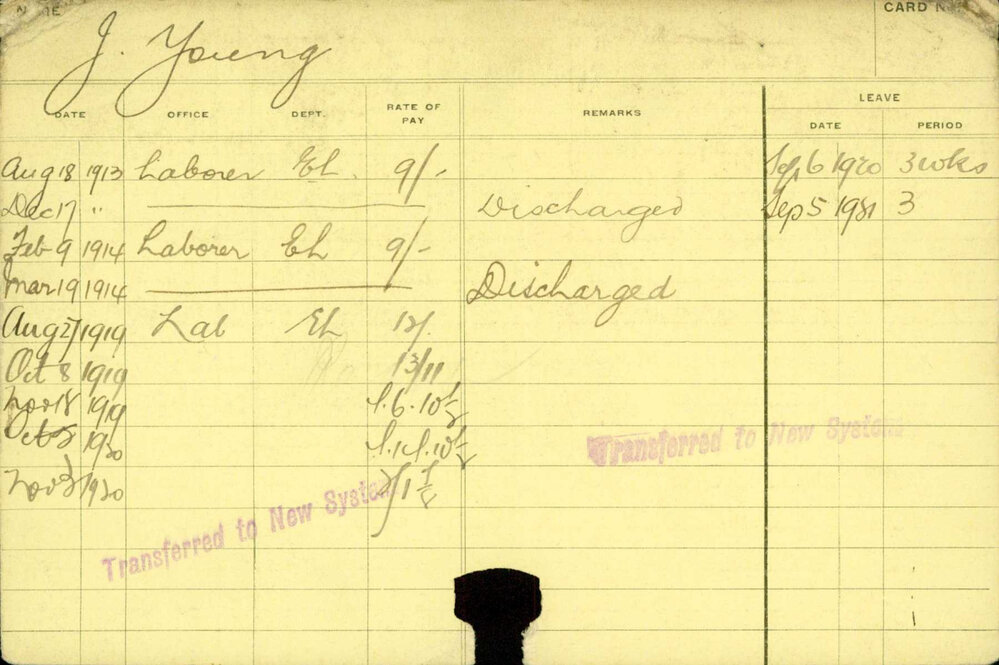 CARD
J. Young
DATE OFFICE DEPT. RATE OF PAY REMARKS LEAVE DATE PERIOD
Aug 18 1913 Laborer El. 9/- Sep 6 1920 3 wks
Dec 17 " Discharged Sep 5 1921 3
Feb 9 1914 Laborer El 9/-
Mar 19 1914 Discharged
Aug 27 1919 Lab El 12/
Oct 8 1919 13/11
Nov 18 1919
Oct 1920
Nov 1920
Transferred to New System
Transferred to New System